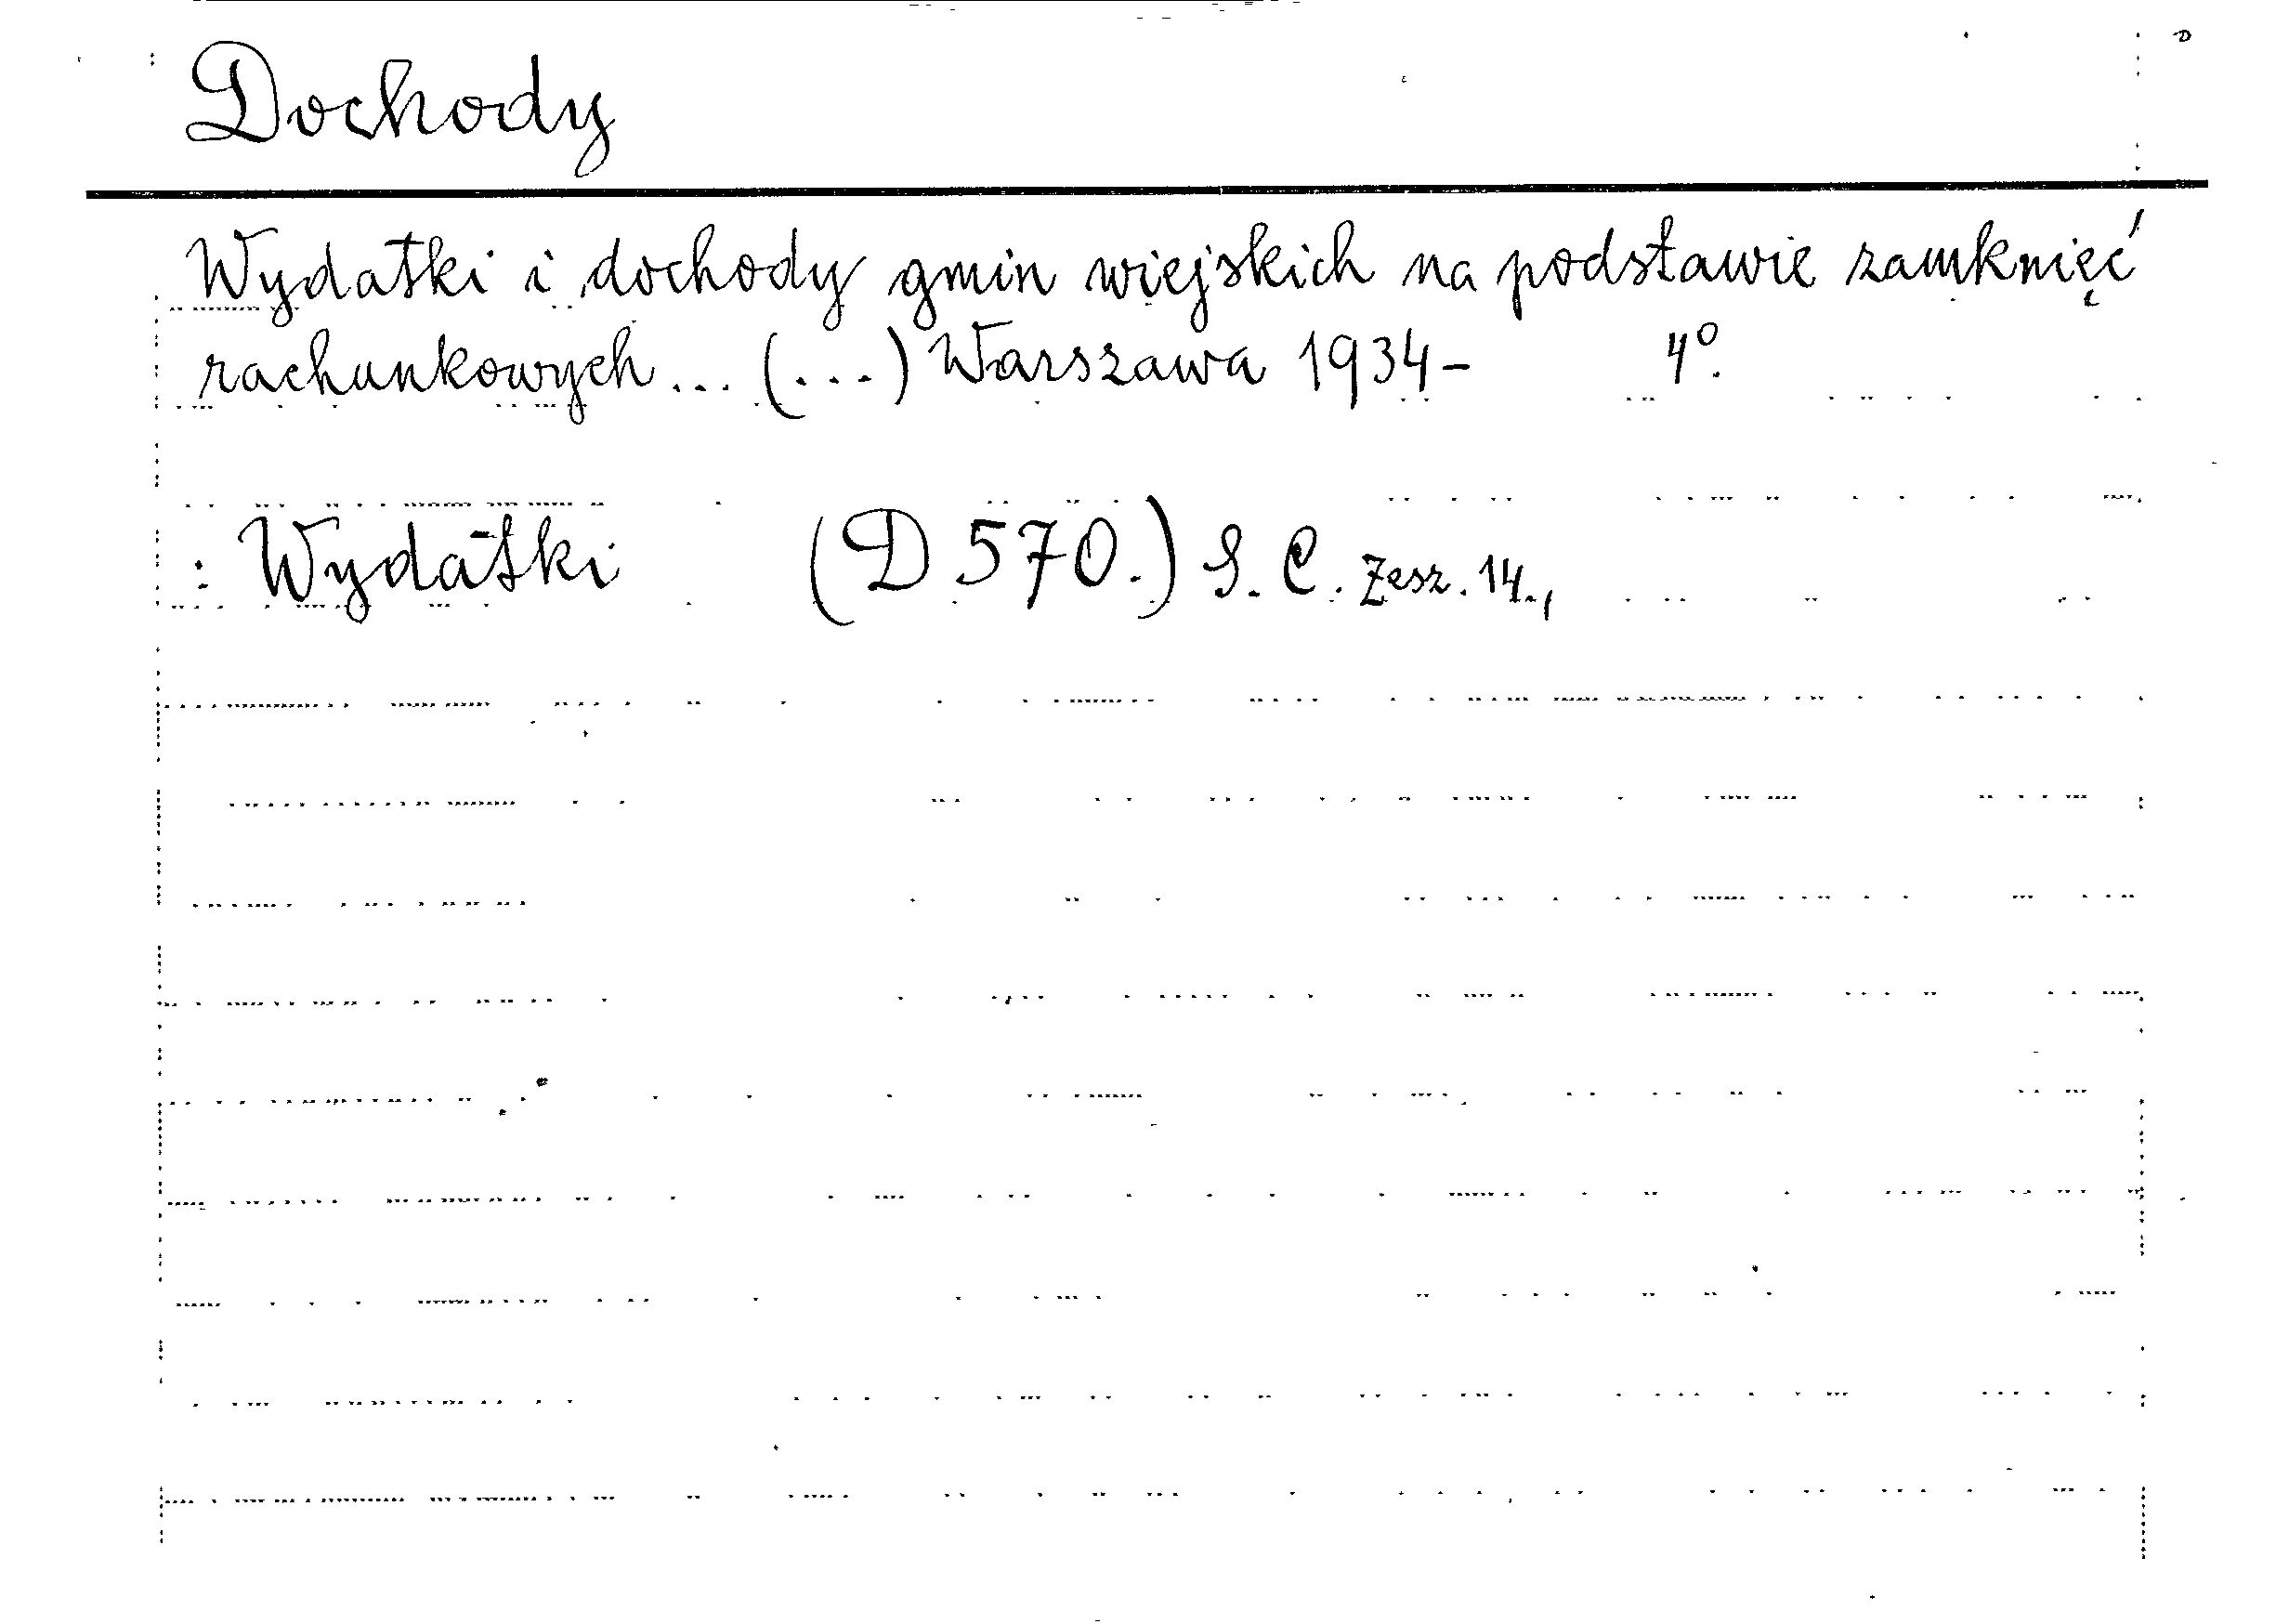 Dochody
Wydatki i dochody gmin wiejskich na podstawie zamknięć
rachunkowych ... (...) Warszawa 1934- 4º.
: Wydatki (D 570.) S. C. Zesz. 14.,